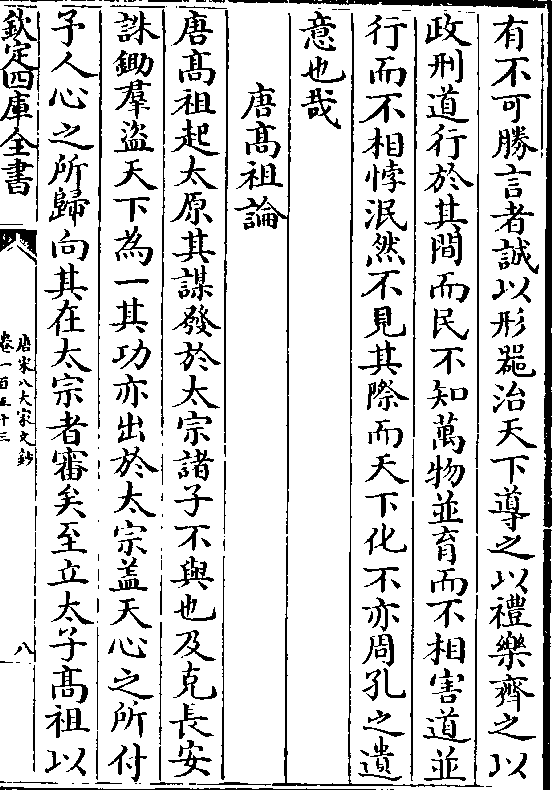 有不可勝言者誠以形噐治天下導之以禮樂齊之以
政刑道行於其間而民不知萬物並育而不相害道並
行而不相悖泯然不見其際而天下化不亦周孔之遺
意也哉
唐髙祖論
唐髙祖起太原其謀發於太宗諸子不與也及克長安
誅鋤羣盜天下為一其功亦出於太宗盖天心之所付
予人心之所歸向其在太宗者審矣至立太子髙祖以
欽定四庫全書
唐宋八大家文鈔
卷一百五十三
八